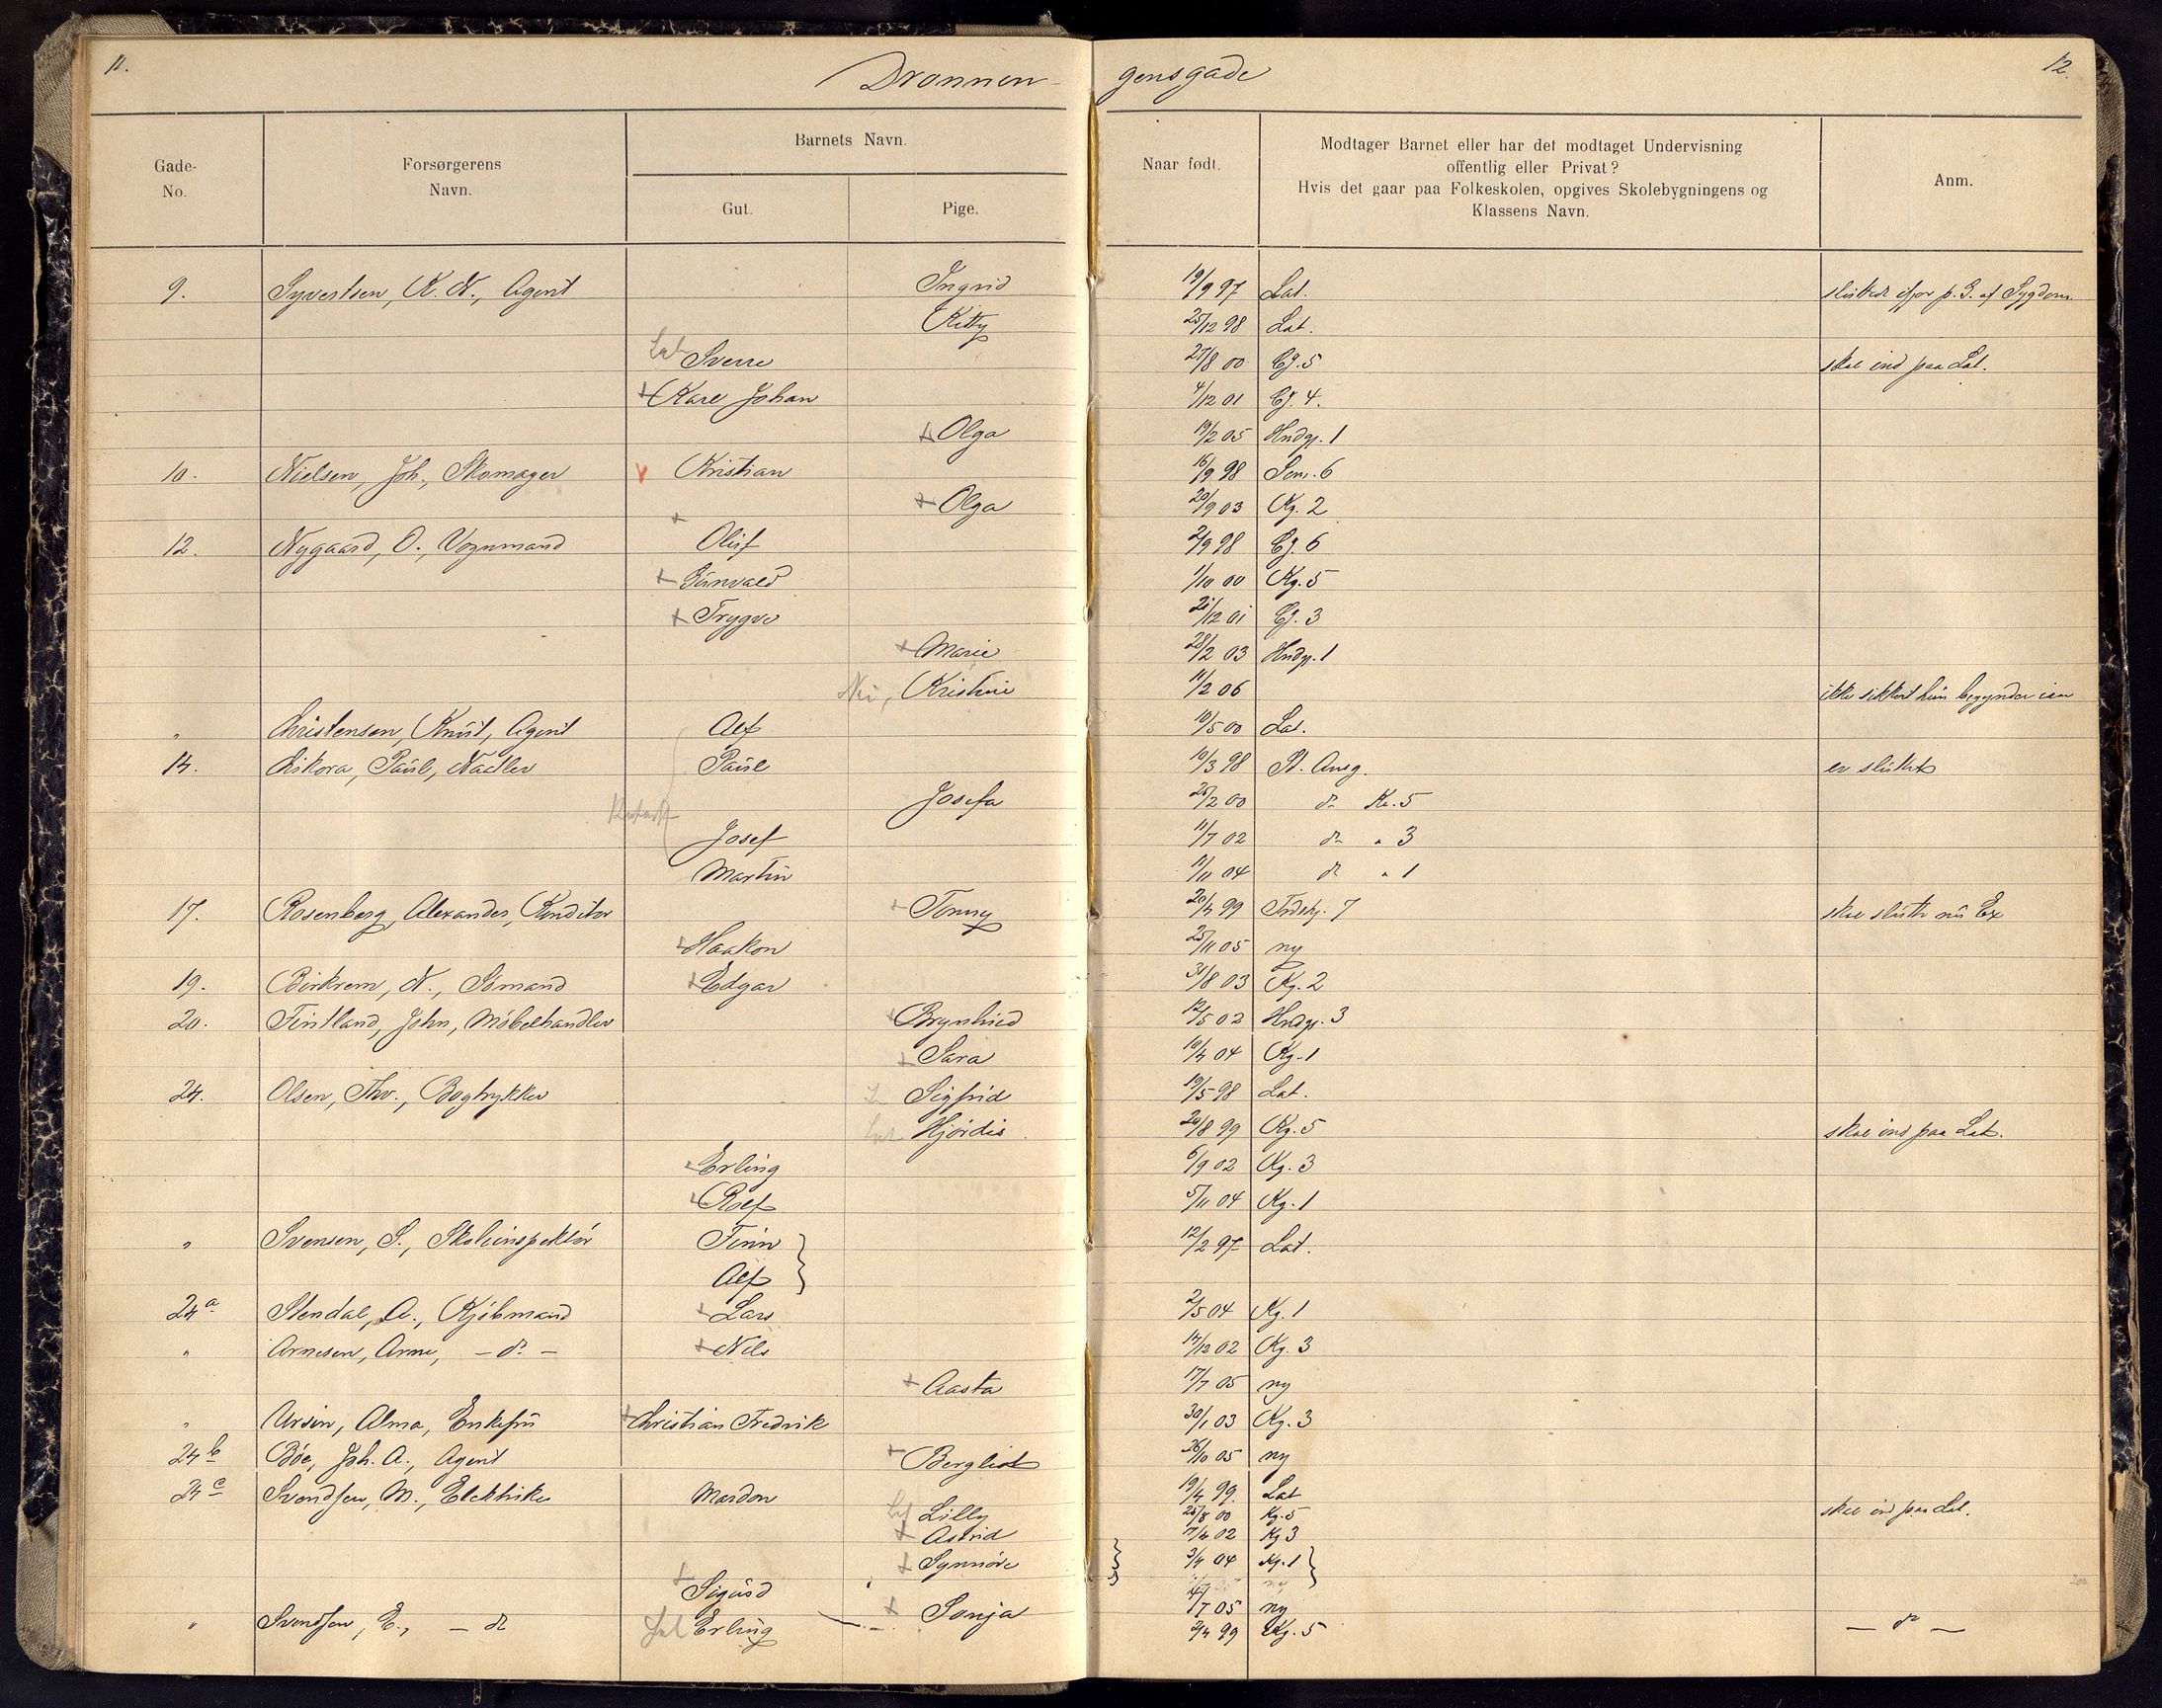 11.
Dronnen-
gensgade
12.
Gade-
No.
Forsørgerens
Navn.
Barnets Navn.
Gut.
Pige.
Naar født.
Modtager Barnet eller har det modtaget Undervisning
offentlig eller Privat?
Hvis det gaar paa Folkeskolen, opgives Skolebygningens og
Klassens Navn.
Anm.
9. Syvertsen, K. N., Agent Ingrid 19/9 97 Lat. sluttede ifjor p. G. af Sygdom.
Kitty 25/12 98 Lat.
Lat Sverre 27/8 00 Ef. 5 skal ind paa Lat.
+ Karl Johan 4/12 01 Ef. 4.
+ Olga 19/2 05 Hndg. 1
10. Nielsen, Joh., Skomager v Kristian 16/9 98 Sem. 6
+ Olga 20/9 03 Kg. 2
12. Nygaard, O., Vognmand + Oluf 2/9 98 Ef. 6
+ Gunvald 1/10 00 Kg. 5
+ Trygve 21/12 01 Ef. 3
+ Marie 28/2 03 Hndg. 1
Nei, Kristine 11/2 06 ikke sikkert hun begynder iaar
" Christensen, Knut, Agent Alf 10/5 00 Lat.
14. Sikora, Paul, Nadler Paul 10/3 98 St. Ansg. er sluttet
Josefa 25/2 00 do Kl. 5
Josef 11/7 02 do " 3
Martin 11/11 04 do " 1
17. Rosenberg, Alexander, Konditor + Tonny 20/4 99 Trdskj. 7 skal slutte nu Ex
+ Haakon 25/11 05 ny
19. Birkrem, N., Sømand + Edgar 31/8 03 Kg. 2
20. Tintland, John, Møbelhandler + Brynhild 12/5 02 Hndg. 3
+ Sara 10/4 04 Kg. 1
24. Olsen, Thv., Bogtrykker L Sigfrid 19/5 98 Lat.
Lat Hjørdis 20/8 99 Kg. 5 skal ind paa Lat.
+ Erling 6/9 02 Kg. 3
+ Rolf 5/11 04 Kg. 1
" Svensen, S., Skoleinspektør Finn 12/2 97 Lat.
Alf
24 a Stendal, A., Kjøbmand + Lars 2/5 04 Kg. 1
" Arnesen, Arne, - do - + Nils 14/12 02 Kg. 3
+ Aasta 17/7 05 ny
" Ursin, Alma, Enkefru + Christian Fredrik 30/1 03 Kg. 3
24 b Bøe, Joh. A., Agent + Bergliot 26/10 05 ny
24 c Svendsen, M., Elektriker Mardon 19/4 99. Lat
Lat Lilly 25/8 00 Kg. 5 skal ind paa Lat.
+ Astrid 17/4 02 Kg 3
+ Synnøve 3/4 04 Kg. 1
+ Sigurd
+ Sonja 4/7 05 ny
" Svendsen, E., - do Lat Erling 2/4 99 Kg. 5 - do -